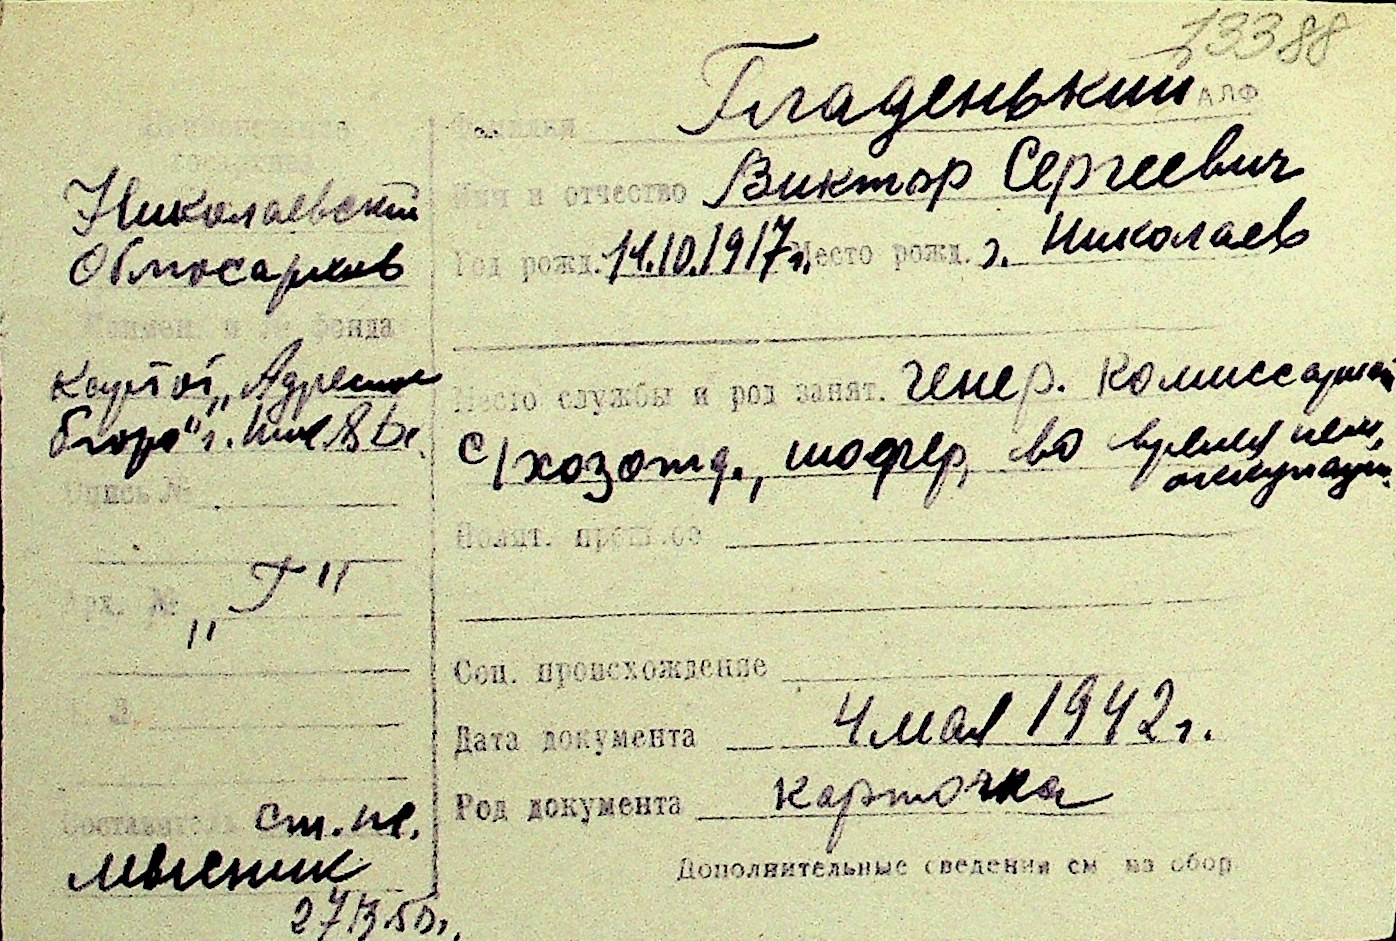 13388
Гладенький АЛФ
Фамилия
Наименование
госархива
Николаевский
Облгосархив
Имя и отчество Виктор Сергеевич
Год рожд. 14.10.1917г. Место рожд. г. Николаев
Наимен. и № фонда
Картот. „Адресное
бюро" г.
Место службы и род занят. генер. комиссариат
с/хозотд., шофер, во время нем.
оккупации
Опись №
Полит. прош.ое
Арх. № „Г"
Соц. происхождение
Дата документа 4 мая 1942 г.
Род документа карточка
Составитель ст. н.
Мысник
50г.
Дополнительные сведения см на обор